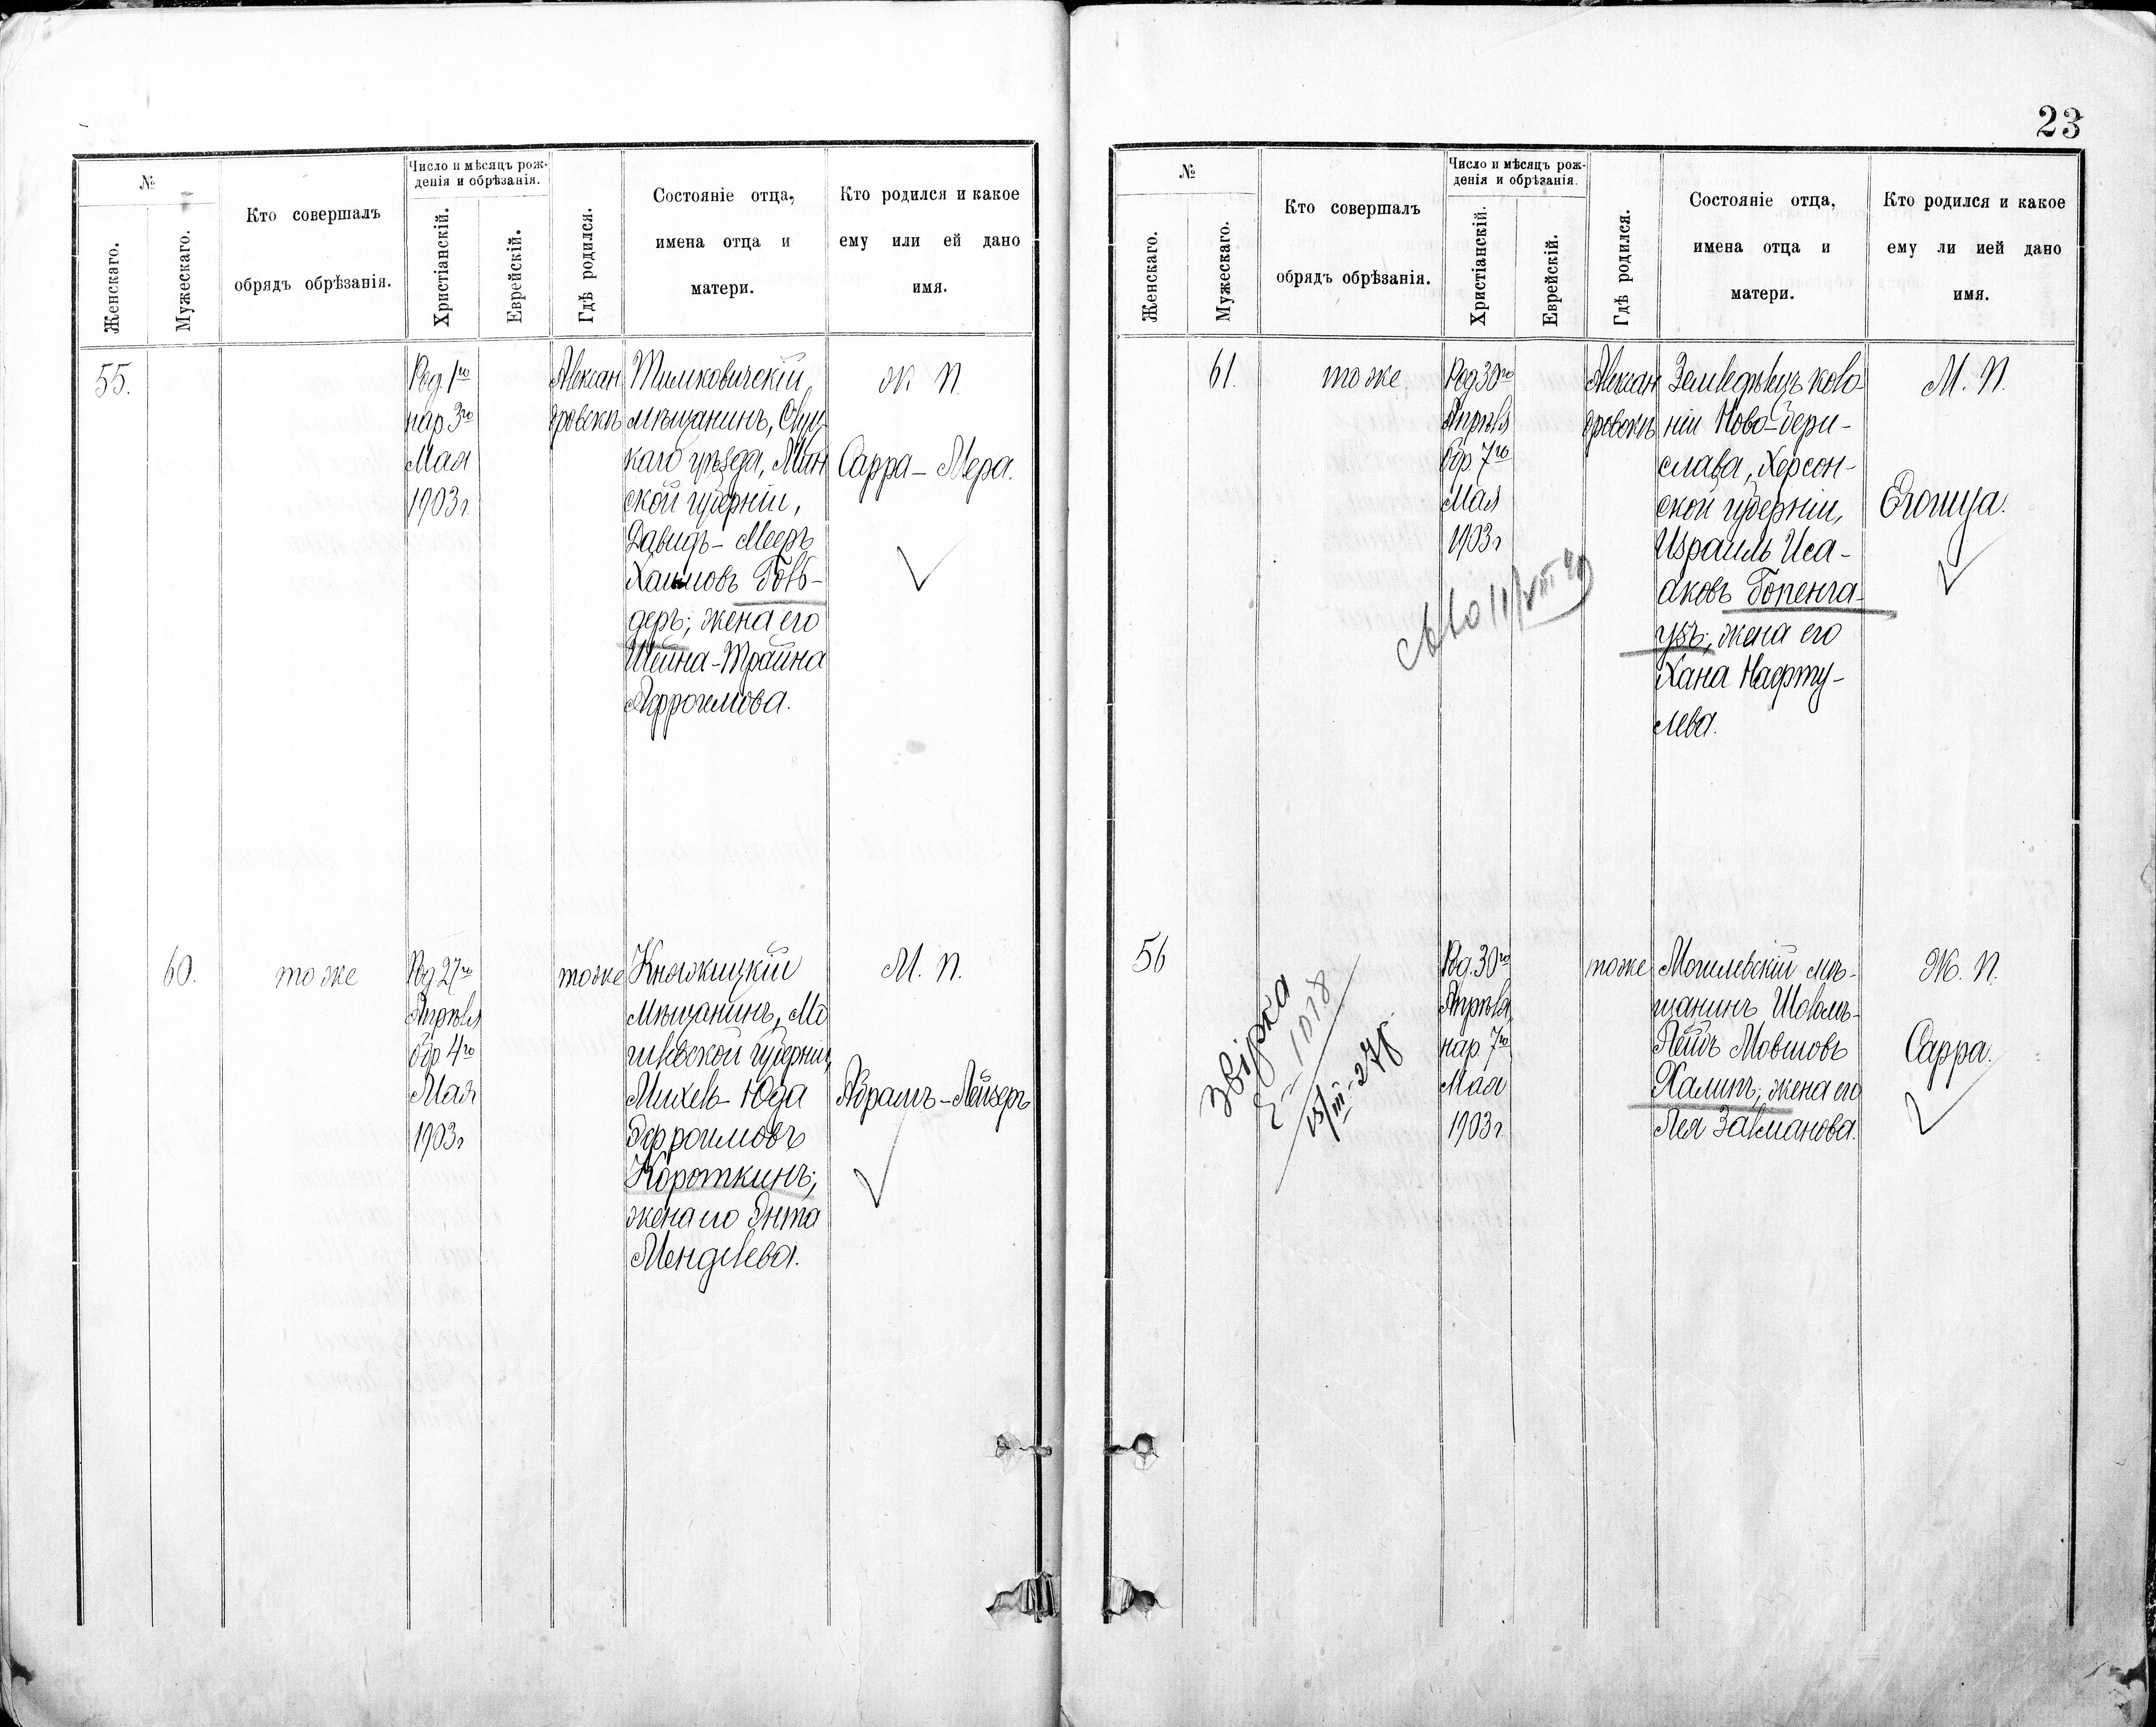 №
Женскаго.
Мужескаго.
Кто совершалъ
обрядъ обрѣзанія.
Число и мѣсяцъ рож-
денія и обрѣзанія.
Христіанскій.
Еврейскій.
Гдѣ родился.
Состояніе отца,
имена отца и
матери.
Кто родился и какое
ему или ей дано
имя.
55.
Род. 1го
нар. 3го
Мая
1903 г
Алексан
дровскъ
Тимковичскій
мѣщанинъ, Слуц
каго уѣзда, Мин
ской губерніи,
Давидъ-Мееръ
Хаимовъ Голь-
деръ; жена его
Шейна-Трайна
Афроимова.
Ж П
Сарра-Мера.
60.
тоже
Род 27го
Апрѣля
обр 4го
Мая
1903 г
тоже
Княжицкій
мѣщанинъ, Мо
гилевской губерніи,
Михель-Юда
Эфроимовъ
Короткинъ;
жена его Энта
Менделева.
М. П.
Абрамъ-Лейзеръ
23
№
Женскаго.
Мужескаго.
Кто совершалъ
обрядъ обрѣзанія.
Число и мѣсяцъ рож-
денія и обрѣзанія.
Христіанскій.
Еврейскій.
Гдѣ родился.
Состояніе отца,
имена отца и
матери.
Кто родился и какое
ему ли ией дано
имя.
61.
тоже
Род 30го
Апрѣля
обр. 7го
Мая
1903 г
Алексан
дровскъ
Земледѣлецъ коло
ніи Ново-Бери-
слава, Херсон-
ской губерніи,
Израиль Иса-
аковъ Гопенга-
узъ; жена его
Хана Нафту-
лева.
М. П.
56
звірка
Род. 30го
Апрѣля,
нар 7го
Мая
1903 г
тоже
Могилевскій мѣ-
щанинъ Шоломъ-
Лейбъ Мовшовъ
Халипъ; жена его
Лея Залманова.
Ж. П.
Сарра.